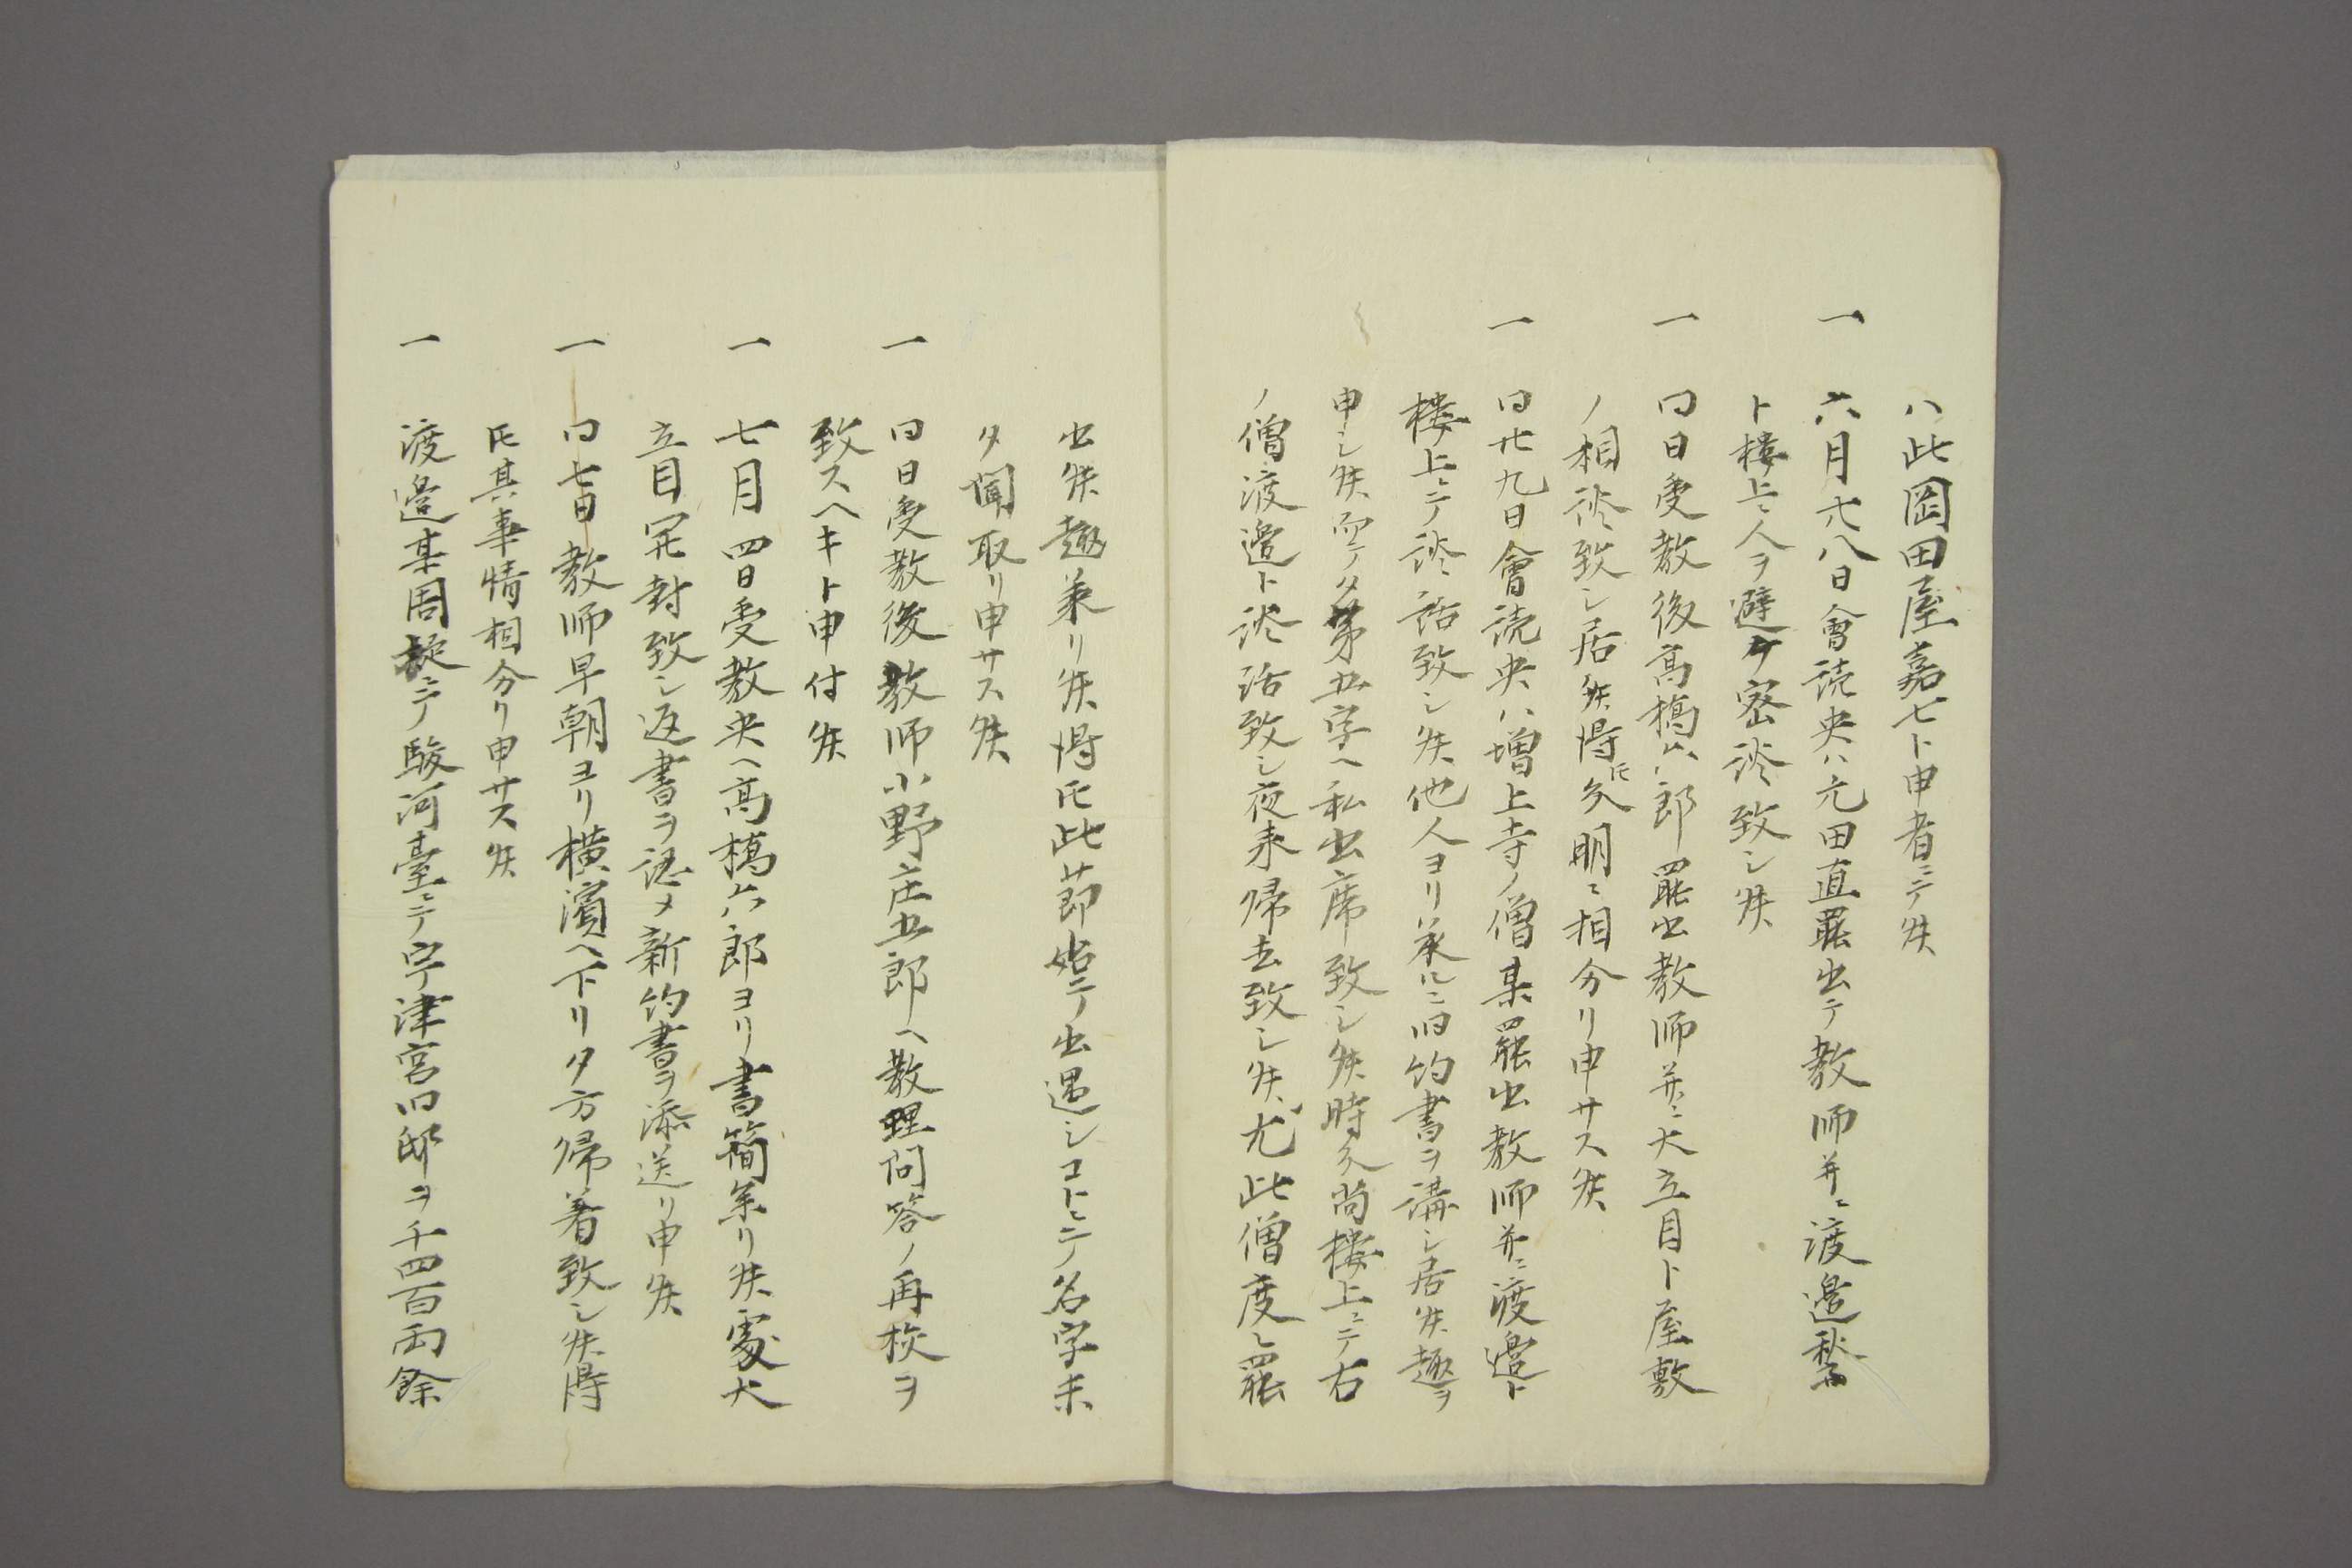 ハ此岡田屋嘉七ト申者ニテ候
一 六月廿八日會読央ハ元田直罷出テ教師并ニ渡邉秋
ト樓上ニ人ヲ避ケ密談致シ候
一 同日受教後髙橋六郎罷出教師并ニ大立目ト屋敷
ノ相談致シ居候得𪜈分明ニ相分リ申サス候
一 同廿九日會読央ハ増上寺ノ僧某罷出教師并ニ渡邉ト
樓上ニテ談話致シ候他人ヨリ承ルニ旧約書ヲ講シ居候趣ヲ
申シ候而テ夕第五字ヘ私出席致シ候時分尚樓上ニテ右
ノ僧渡邉ト談話致シ夜来帰去致シ候尤此僧度々罷
出候趣承リ候得𪜈此節始テ出遇シコトニテ名字未
タ聞取リ申サス候
一 同日受教後教師小野庄五郎ヘ教理問答ノ再校ヲ
致スヘキト申付候
一 七月四日受教央ヘ髙橋六郎ヨリ書簡来リ候處大
立目開封致シ返書ヲ認メ新約書ヲ添送リ申候
一 同七日教師早朝ヨリ横濱ヘ下リ夕方帰着致シ候得
𪜈其事情相分リ申サス候
一 渡邉某周旋ニテ駿河臺ニテ宇津宮旧邸ヲ千四百両餘